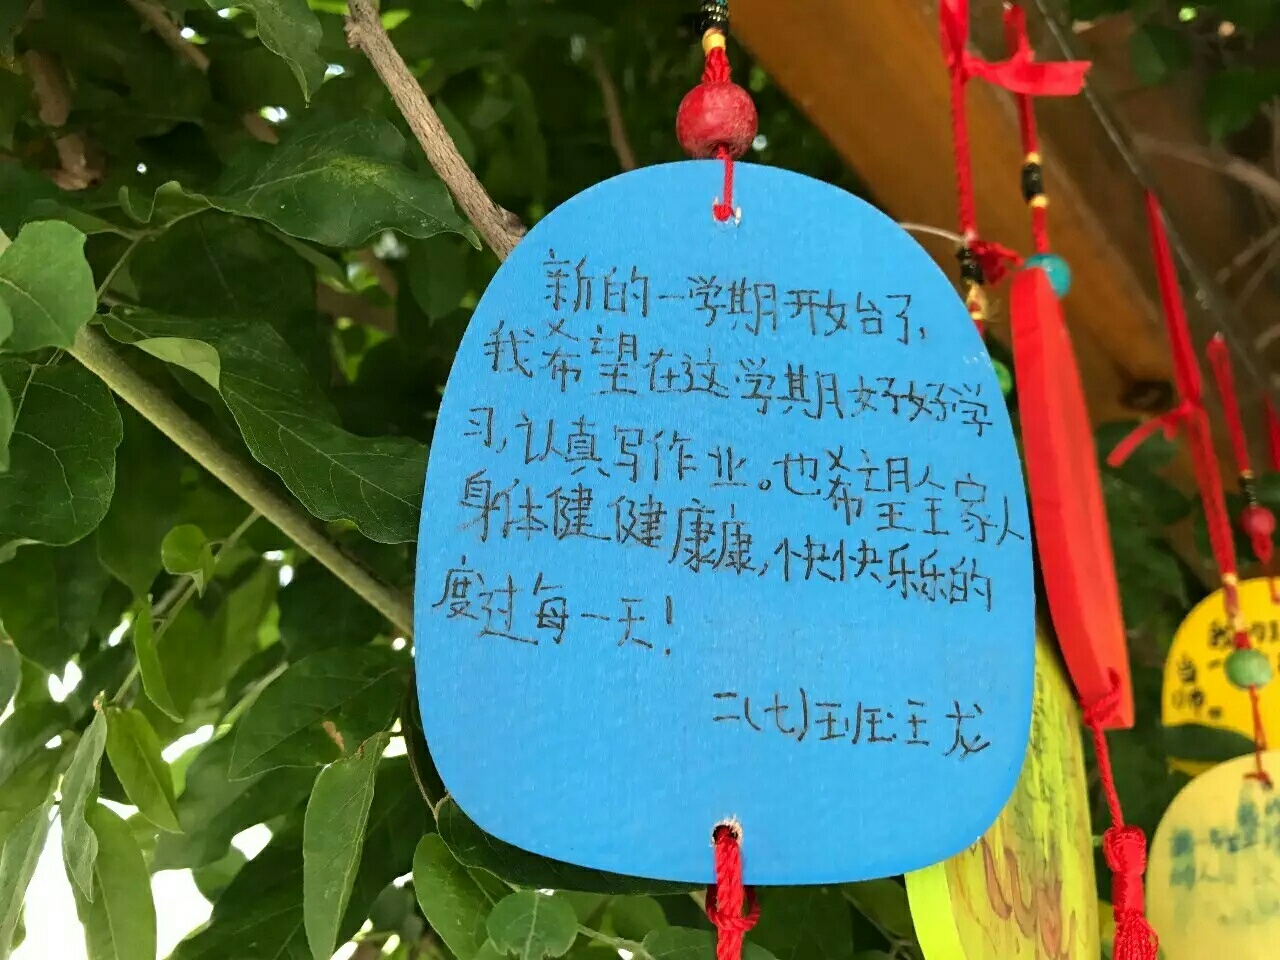 新的一学期开始了,
我希望在这学期好好学
习,认真写作业。也希望全家人
身体健健康康,快快乐乐的
度过每一天!
二(七)班:王龙